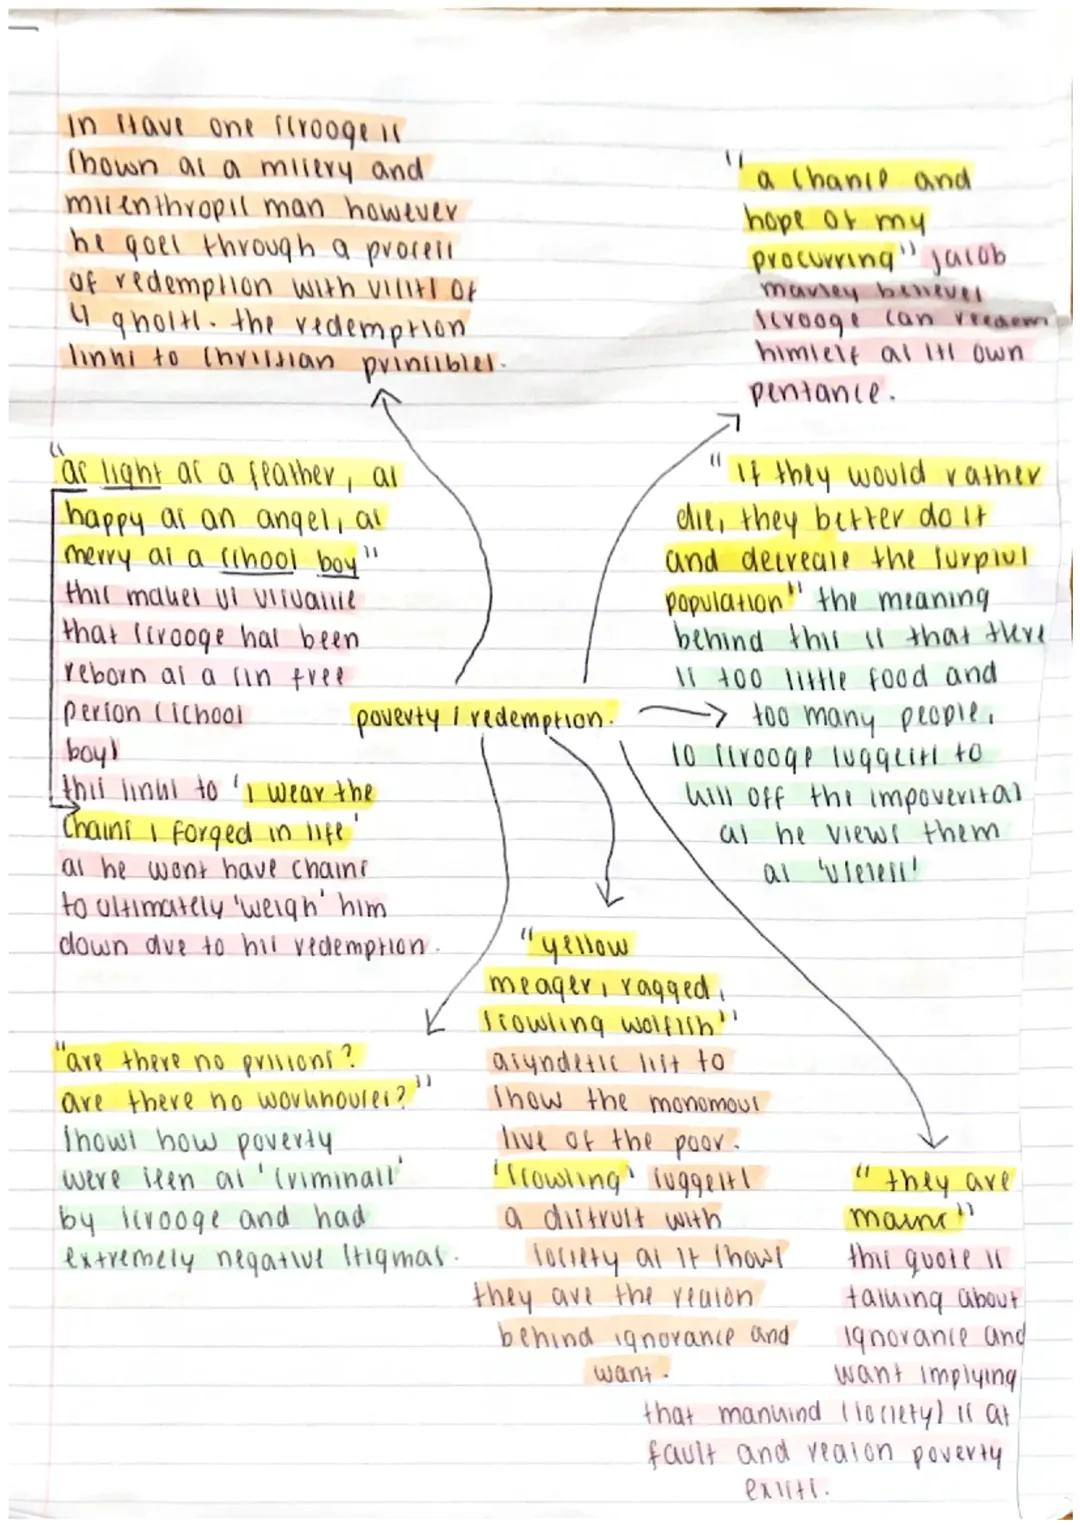 In stave one scrooge is
shown as a misery and
misenthropic man however
he goes through a process
of redemption with visits of
4 ghosts. the redemption
links to christian princibles.
"a chance and
hope of my
procurring" jacob
marley believes
scrooge can redeem
himself as its own
pentance.
"as light as a feather, as
happy as an angel, as
merry as a school boy"
this makes us visualise
that scrooge has been
reborn as a sin free
person (school
boy)
this links to 'I wear the
chains I forged in life'
as he wont have chains
to ultimately 'weigh' him
down due to his redemption.
"if they would rather
die, they better do it
and decrease the surplus
population" the meaning
behind this is that there
is too little food and
too many people,
so scrooge suggests to
kill off the impoverished
as he views them
as 'useless'
poverty / redemption.
"are there no prisions?
are there no workhouses?"
shows how poverty
were seen as 'criminals'
by scrooge and had
extremely negative stigmas.
"yellow
meager, ragged,
scowling wolfish"
asyndetic list to
show the monomous
live of the poor.
'scowling' suggests
a distrust with
society as it shows
they are the reason
behind ignorance and
want.
"they are
mans"
this quote is
talking about
ignorance and
want implying
that mankind (society) is at
fault and reason poverty
exists.